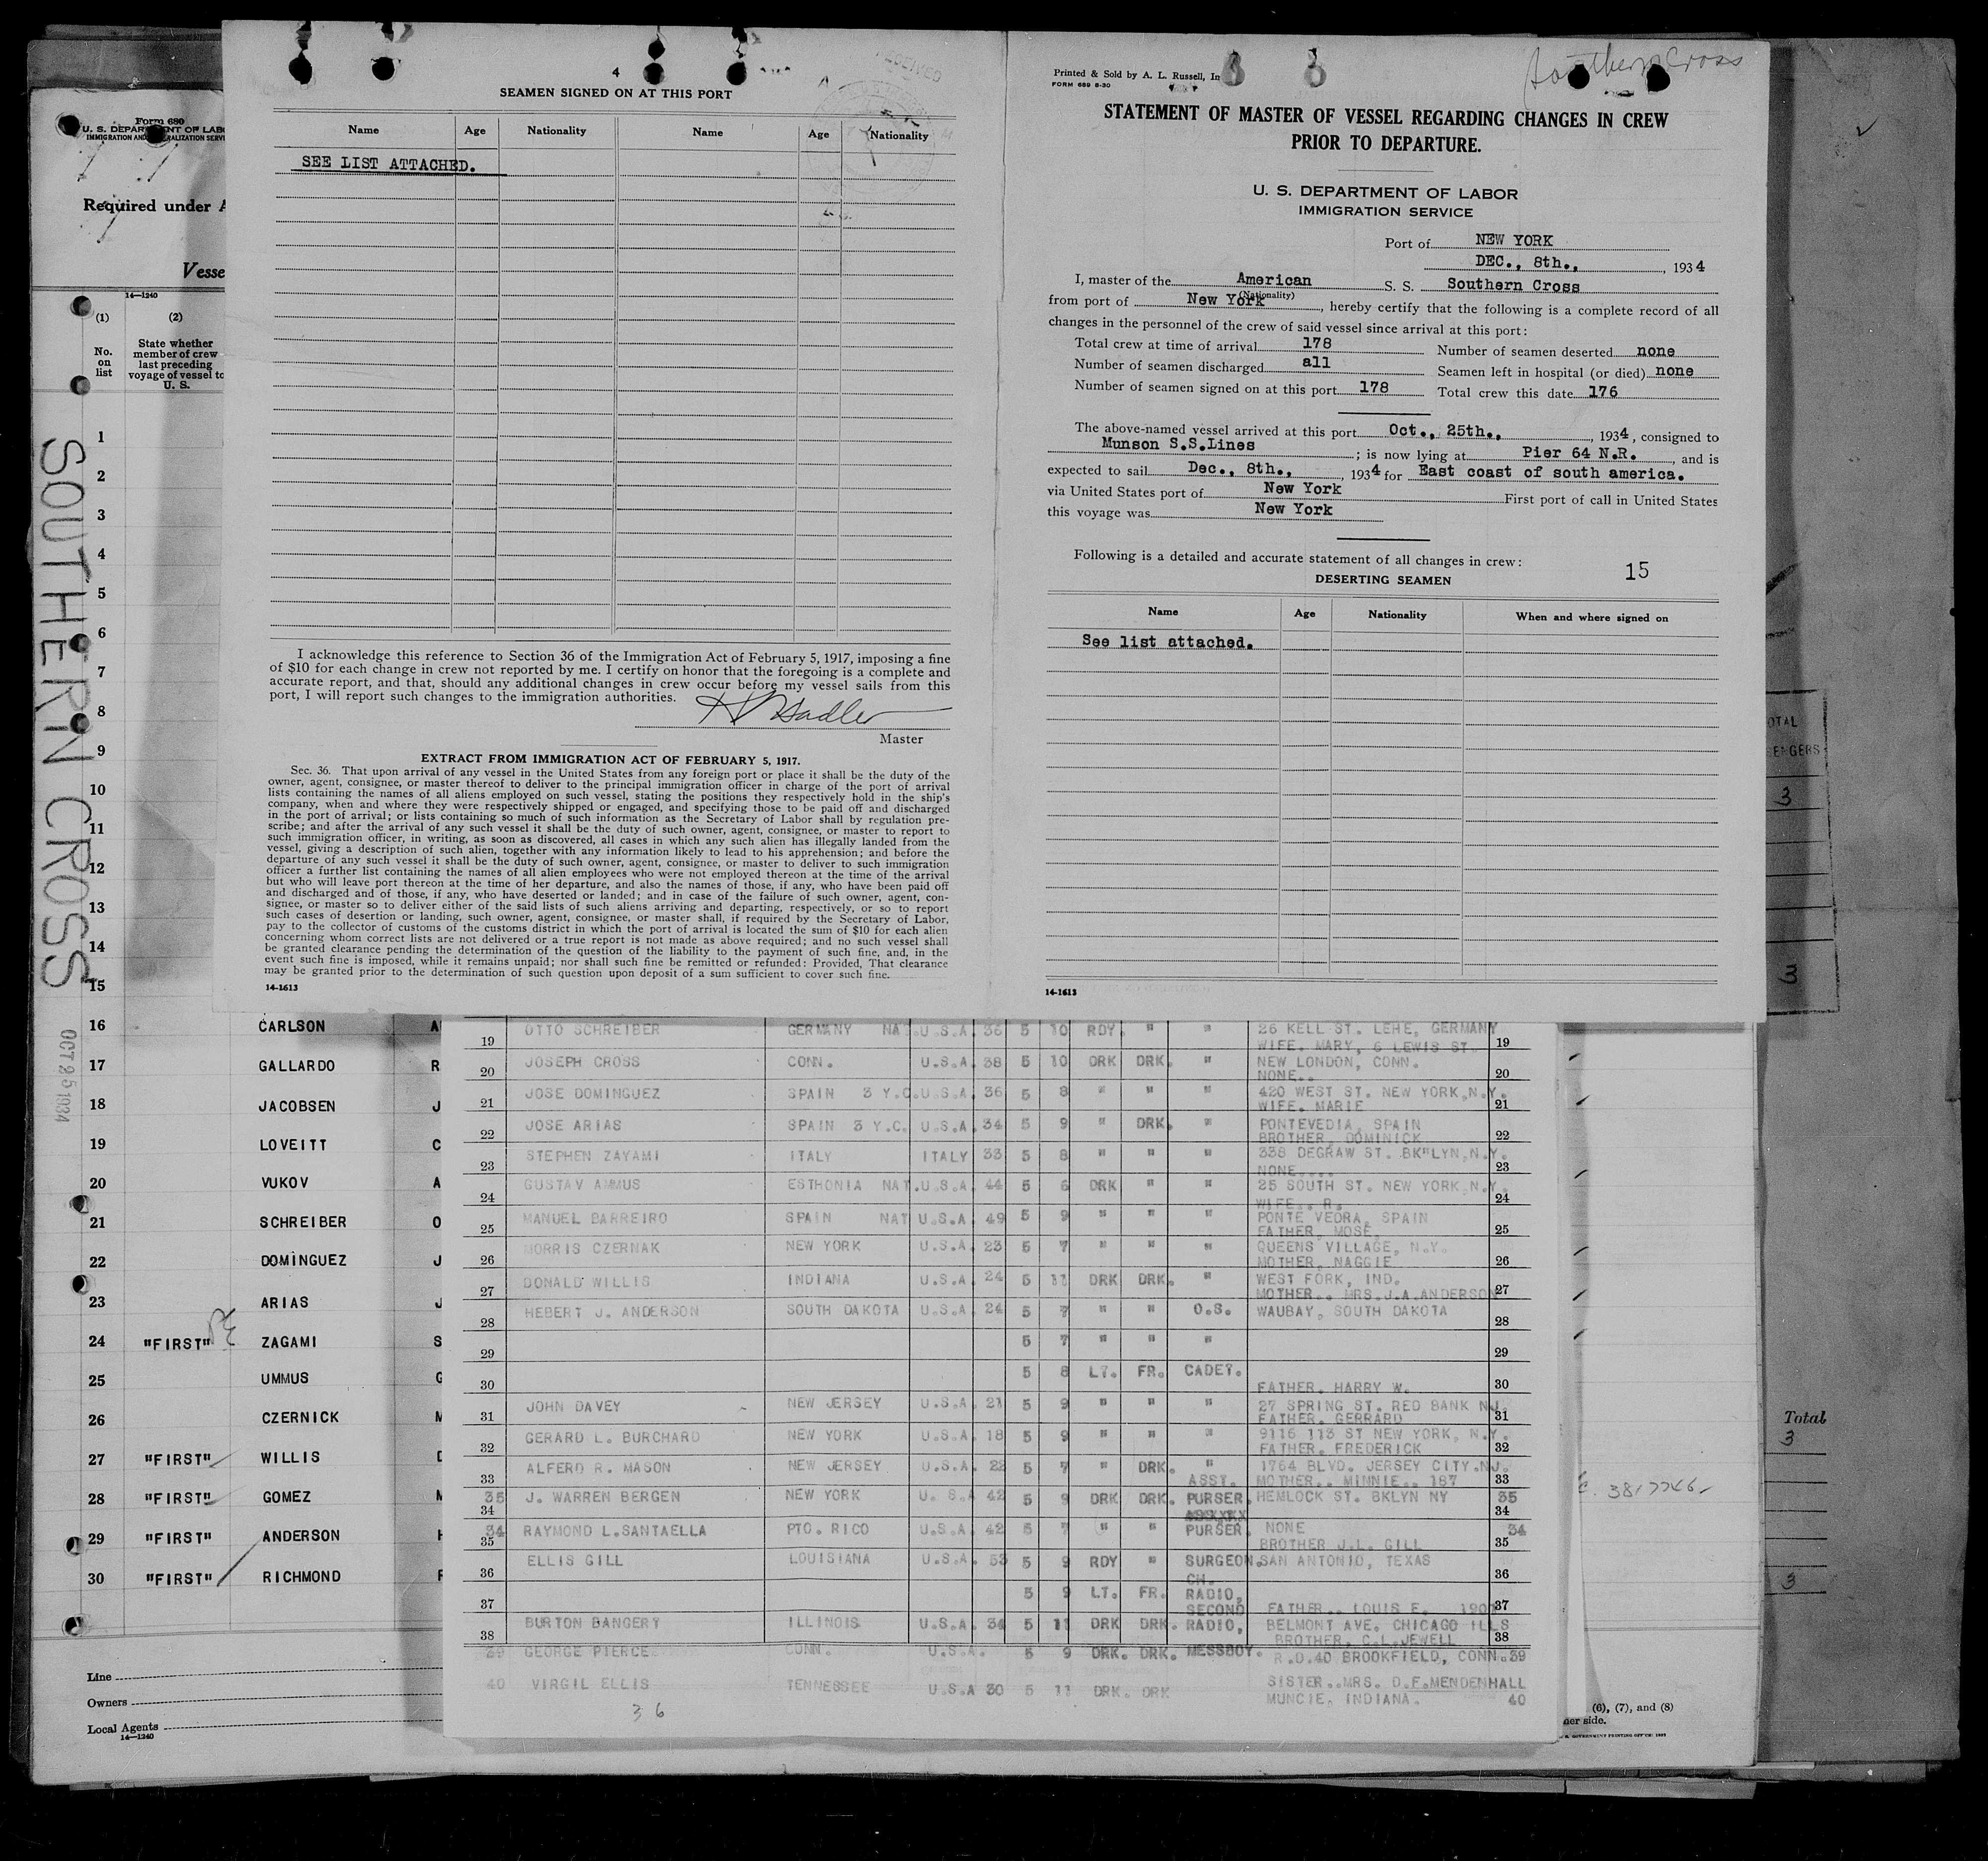 4
SEAMEN SIGNED ON AT THIS PORT
Name Age Nationality Name Age Nationality
SEE LIST ATTACHED.
I acknowledge this reference to Section 36 of the Immigration Act of February 5, 1917, imposing a fine
of $10 for each change in crew not reported by me. I certify on honor that the foregoing is a complete and
accurate report, and that, should any additional changes in crew occur before my vessel sails from this
port, I will report such changes to the immigration authorities.
Master
EXTRACT FROM IMMIGRATION ACT OF FEBRUARY 5, 1917.
Sec. 36. That upon arrival of any vessel in the United States from any foreign port or place it shall be the duty of the
owner, agent, consignee, or master thereof to deliver to the principal immigration officer in charge of the port of arrival
lists containing the names of all aliens employed on such vessel, stating the positions they respectively hold in the ship's
company, when and where they were respectively shipped or engaged, and specifying those to be paid off and discharged
in the port of arrival; or lists containing so much of such information as the Secretary of Labor shall by regulation pre-
scribe; and after the arrival of any such vessel it shall be the duty of such owner, agent, consignee, or master to report to
such immigration officer, in writing, as soon as discovered, all cases in which any such alien has illegally landed from the
vessel, giving a description of such alien, together with any information likely to lead to his apprehension; and before the
departure of any such vessel it shall be the duty of such owner, agent, consignee, or master to deliver to such immigration
officer a further list containing the names of all alien employees who were not employed thereon at the time of the arrival
but who will leave port thereon at the time of her departure, and also the names of those, if any, who have been paid off
and discharged and of those, if any, who have deserted or landed; and in case of the failure of such owner, agent, con-
signee, or master so to deliver either of the said lists of such aliens arriving and departing, respectively, or so to report
such cases of desertion or landing, such owner, agent, consignee, or master shall, if required by the Secretary of Labor,
pay to the collector of customs of the customs district in which the port of arrival is located the sum of $10 for each alien
concerning whom correct lists are not delivered or a true report is not made as above required; and no such vessel shall
be granted clearance pending the determination of the question of the liability to the payment of such fine, and, in the
event such fine is imposed, while it remains unpaid; nor shall such fine be remitted or refunded: Provided, That clearance
may be granted prior to the determination of such question upon deposit of a sum sufficient to cover such fine.
14-1613
Southern Cross
Printed & Sold by A. L. Russell, In
FORM 689 8-30
STATEMENT OF MASTER OF VESSEL REGARDING CHANGES IN CREW
PRIOR TO DEPARTURE.
U. S. DEPARTMENT OF LABOR
IMMIGRATION SERVICE
Port of NEW YORK
DEC., 8th., , 1934
I, master of the American S. S. Southern Cross
(Nationality)
from port of New York, hereby certify that the following is a complete record of all
changes in the personnel of the crew of said vessel since arrival at this port:
Total crew at time of arrival 178 Number of seamen deserted none
Number of seamen discharged all Seamen left in hospital (or died) none
Number of seamen signed on at this port 178 Total crew this date 176
The above-named vessel arrived at this port Oct., 25th., , 1934, consigned to
Munson S.S.Lines ; is now lying at Pier 64 N.R. , and is
expected to sail Dec., 8th., , 1934 for East coast of south america.
via United States port of New York First port of call in United States
this voyage was New York
Following is a detailed and accurate statement of all changes in crew:
15
DESERTING SEAMEN
Name Age Nationality When and where signed on
See list attached.
14-1613
Form 680
U. S. DEPARTMENT OF LAB
IMMIGRATION AND NATURALIZATION SERV
Required under A
Vesse
14-1240
(1) (2)
No. on list
State whether member of crew last preceding voyage of vessel to U. S.
SOUTHERN CROSS
OCT 25 1934
1
2
3
4
5
6
7
8
9
10
11
12
13
14
15
16 CARLSON A
17 GALLARDO R
18 JACOBSEN J
19 LOVEITT C
20 VUKOV A
21 SCHREIBER O
22 DOMINGUEZ J
23 ARIAS J
24 "FIRST" ZAGAMI S
25 UMMUS G
26 CZERNICK M
27 "FIRST" WILLIS D
28 "FIRST" GOMEZ M
29 "FIRST" ANDERSON H
30 "FIRST" RICHMOND F
Line
Owners
Local Agents
14-1240
19 OTTO SCHREIBER GERMANY NAT.U.S.A. 36 5 10 RDY. " " 26 KELL ST. LEHE, GERMANY 19
WIFE. MARY, 6 LEWIS ST.
20 JOSEPH CROSS CONN. U.S.A. 38 5 10 DRK DRK. " NEW LONDON, CONN. 20
NONE..
21 JOSE DOMINGUEZ SPAIN 3 Y.C.U.S.A. 36 5 8 " " " 420 WEST ST. NEW YORK,N.Y. 21
WIFE. MARIE
22 JOSE ARIAS SPAIN 3 Y.C. U.S.A. 34 5 9 " DRK. " PONTEVEDIA, SPAIN 22
BROTHER, DOMINICK
23 STEPHEN ZAYAMI ITALY ITALY 33 5 8 " " " 338 DEGRAW ST. BK"LYN,N.Y. 23
NONE....
24 GUSTAV AMMUS ESTHONIA NAT.U.S.A. 44 5 6 DRK " " 25 SOUTH ST. NEW YORK,N.Y. 24
WIFE.. R.
25 MANUEL BARREIRO SPAIN NAT U.S.A. 49 5 9 " " " PONTE VEDRA, SPAIN 25
FATHER, MOSE,
26 MORRIS CZERNAK NEW YORK U.S.A. 23 5 7 " " " QUEENS VILLAGE, N.Y. 26
MOTHER, NAGGIE
27 DONALD WILLIS INDIANA U.S.A. 24 5 11 DRK DRK. " WEST FORK, IND. 27
MOTHER.. MRS.J.A.ANDERSON
28 HEBERT J. ANDERSON SOUTH DAKOTA U.S.A. 24 5 7 " " O.S. WAUBAY, SOUTH DAKOTA 28
29 5 7 " " " 29
30 5 8 LT. FR. CADET. 30
FATHER. HARRY W.
31 JOHN DAVEY NEW JERSEY U.S.A. 21 5 9 " " " 27 SPRING ST. RED BANK NJ. 31
FATHER. GERRARD
32 GERARD L. BURCHARD NEW YORK U.S.A. 18 5 9 " " " 9116 113 ST NEW YORK, N.Y. 32
FATHER. FREDERICK
33 ALFERD R. MASON NEW JERSEY U.S.A. 22 5 7 " DRK. " 1764 BLVD. JERSEY CITY.NJ. 33
ASST. MOTHER.. MINNIE.. 187
35 34 J. WARREN BERGEN NEW YORK U. S.A 42 5 9 DRK DRK. PURSER. HEMLOCK ST. BKLYN NY 35 34
34 35 RAYMOND L.SANTAELLA PTO. RICO U.S.A. 42 5 7 " " PURSER. NONE 34 35
BROTHER J.L. GILL
36 ELLIS GILL LOUISIANA U.S.A. 53 5 9 RDY " SURGEON. SAN ANTONIO, TEXAS 36
CH.
37 5 9 LT. FR. RADIO, 37
SECOND FATHER.. LOUIS F. 190
38 BURTON BANGERY ILLINOIS U.S.A. 34 5 11 DRK DRK. RADIO, BELMONT AVE. CHICAGO ILLS 38
BROTHER, C.L.JEWELL
39 GEORGE PIERCE CONN. U.S.A. 5 9 DRK. DRK. MESSBOY. R.D.40 BROOKFIELD, CONN. 39
SISTER..MRS. D.F.MENDENHALL
40 VIRGIL ELLIS TENNESSEE U.S.A 30 5 11 DRK. DRK MUNCIE, INDIANA. 40
36
OTAL
ENGERS
3
3
Total
3
3
(6), (7), and (8)
ner side.